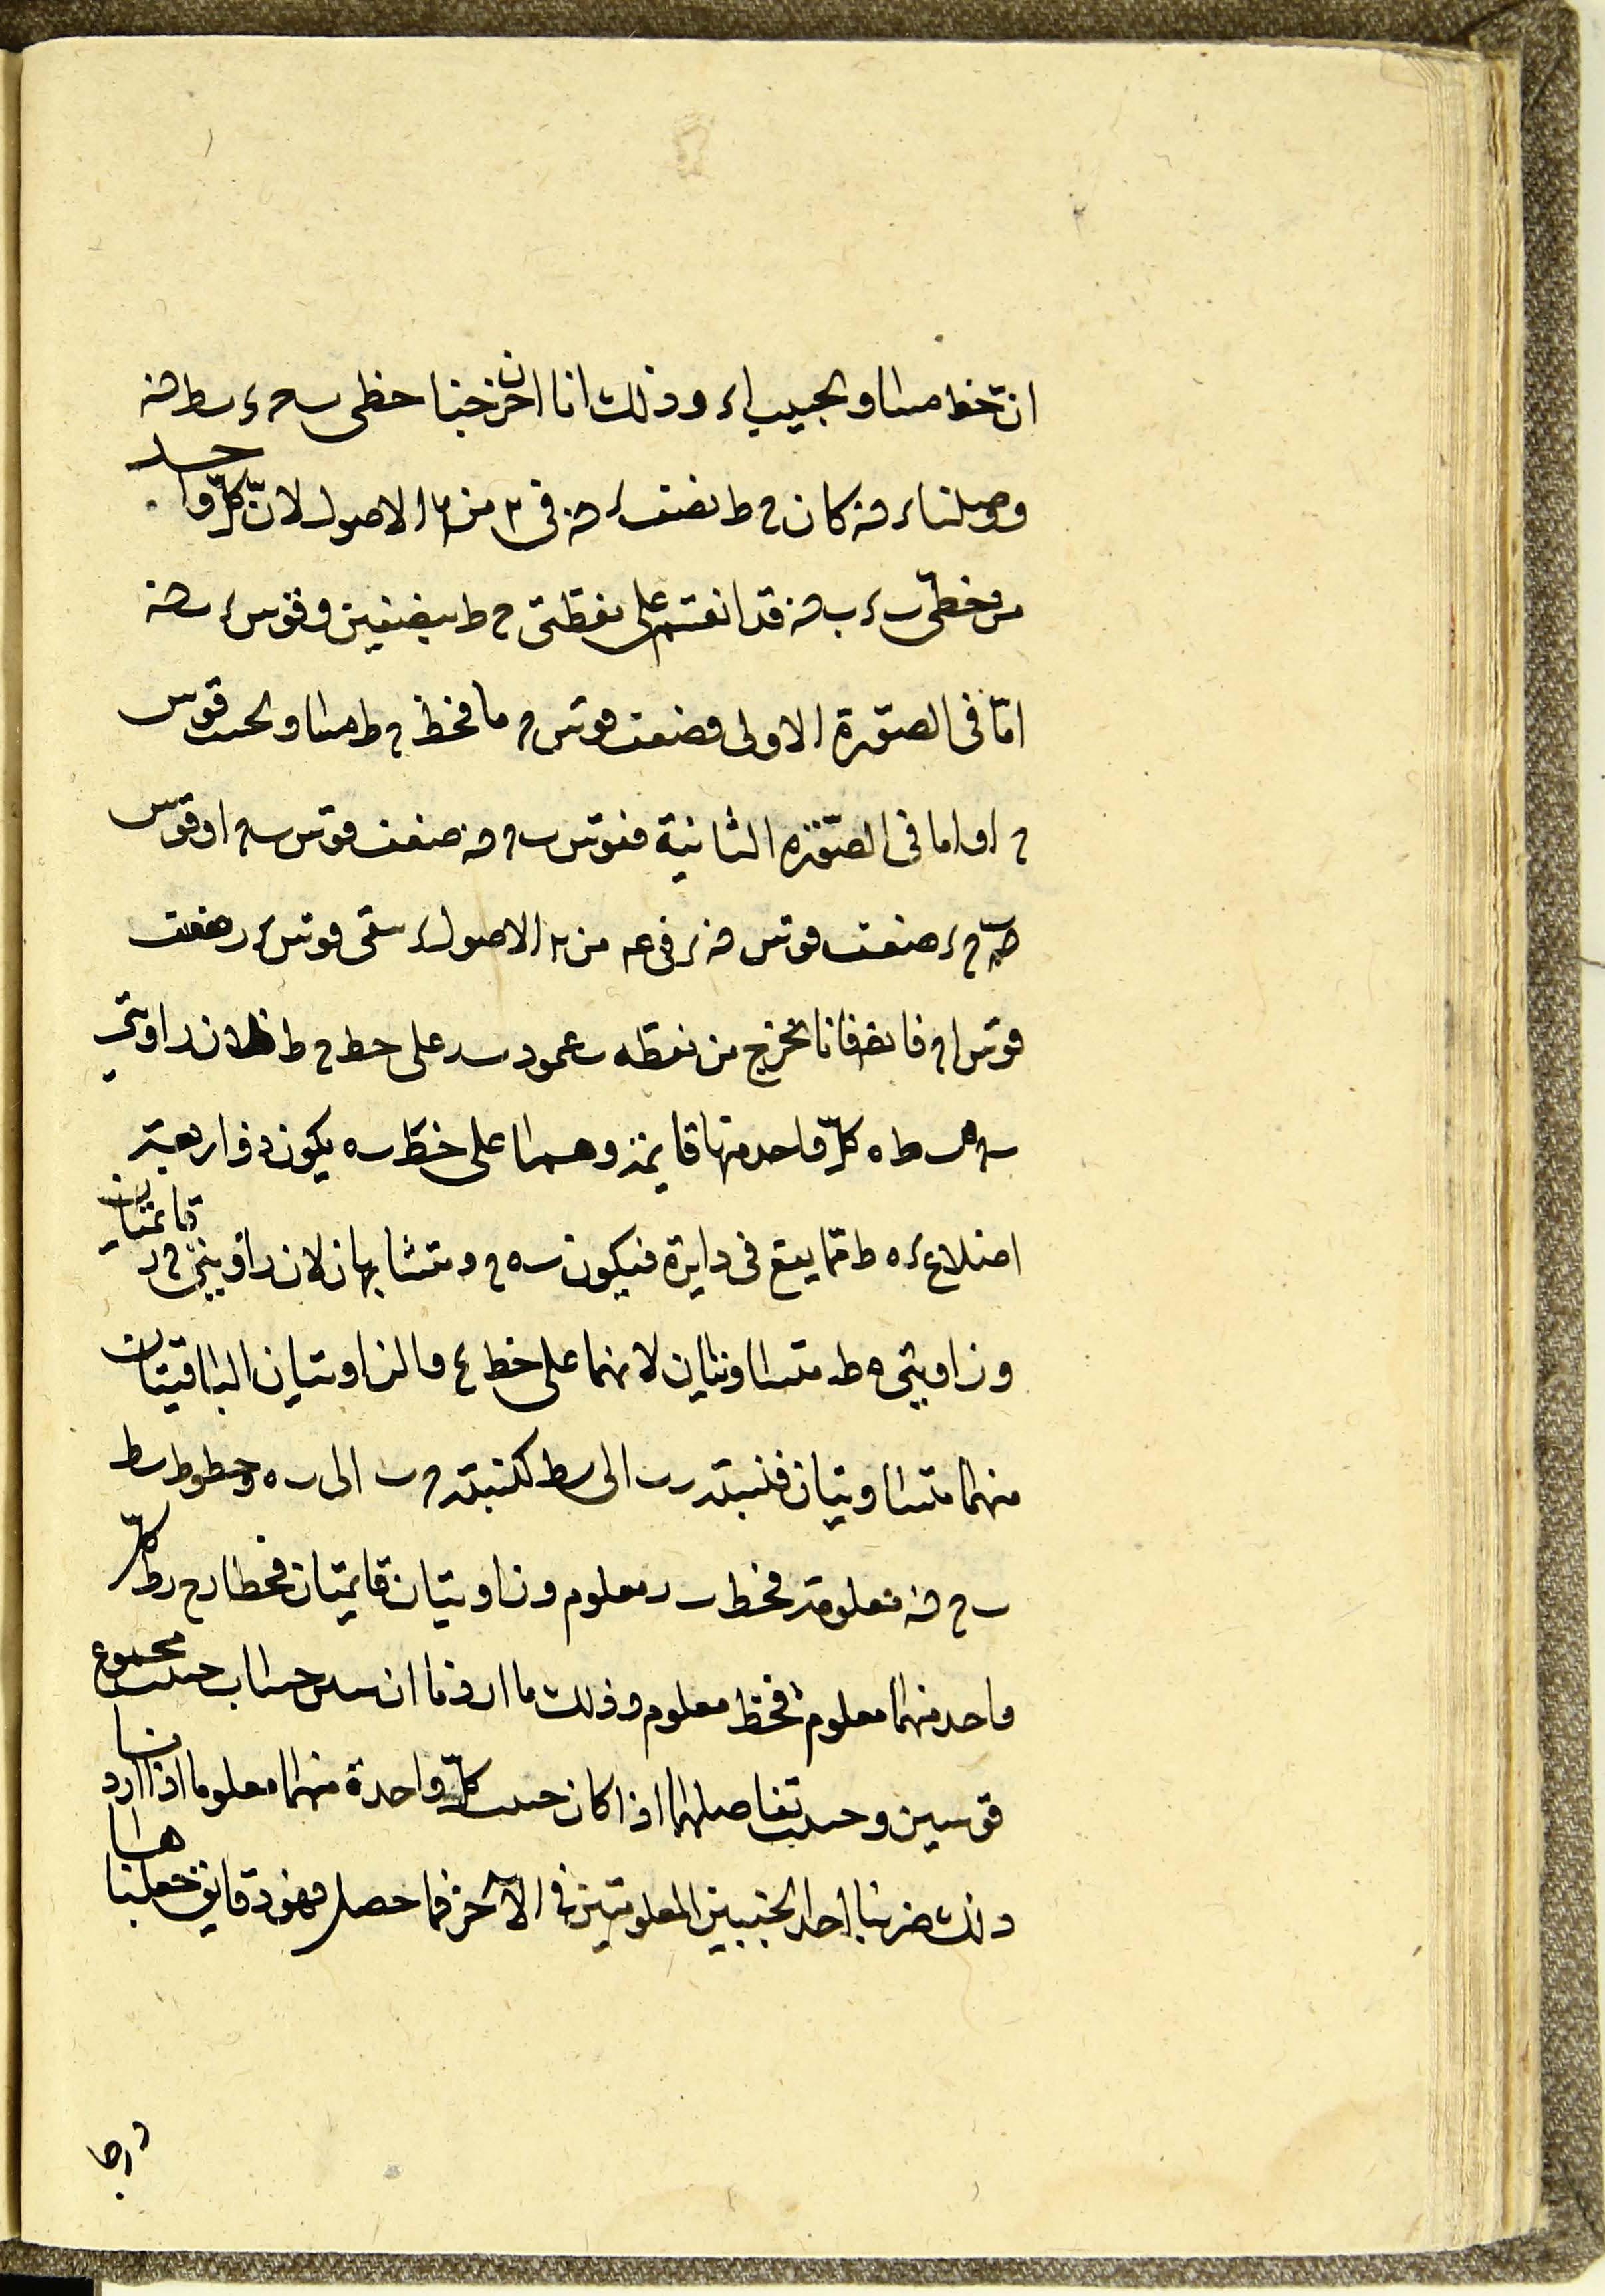 ان خط مساو لجيب اء وذلك انا ان اخرجنا خطى ب ح ء ب ط ه
ووصلنا ء ه كان ح ط نصف ء ه فى ٢ من ٦ الاصول لان كل واحد
من خطى ب ء ب ه قد انقسم على نقطتى ح ط بنصفين وقوس ء ه
اما فى الصورة الاولى فضعف قوس ح ا فخط ح ط مساو لجيب قوس
ح ا واما فى الصورة الثانية فقوس ب ح ه ضعف قوس ب ح ا وقوس
ب ح ء ضعف قوس فى من الاصول ء تبقى قوس ء ضعف
قوس ا ح فايضا فانا نخرج من نقطه ب عمود ب د على خط ح ط فلان زاويتى
ب ح ه ب ط ه كل واحد منها قايمة وهما على خط ب ه يكون ذو اربعة
اضلاع ه ط مما يقع فى دايرة فيكون متشابهان لان زاويتى ح د قايمتان
وزاويتى ه ط متساويتان لانهما على خط والزاويتان الباقيتان
منهما متساويتان فنسبة د ب الى ب ط كنسبة ح ب الى ب ه وخطوط ب ط
ب ح ب ه معلومة فخط ب د معلوم وزاويتان قايمتان فخطا د ح د ط كل
واحد منهما معلوم فخط معلوم وذلك ما اردنا ان حساب جيب مجموع
قوسين وجيب تفاضلهما اذا كان جيب كل واحدة منهما معلوما اذا اردنا
ذلك ضربنا احد الجيبين المعلومتين فى الآخر فما حصل فهو دقايق جعلناها
درجا